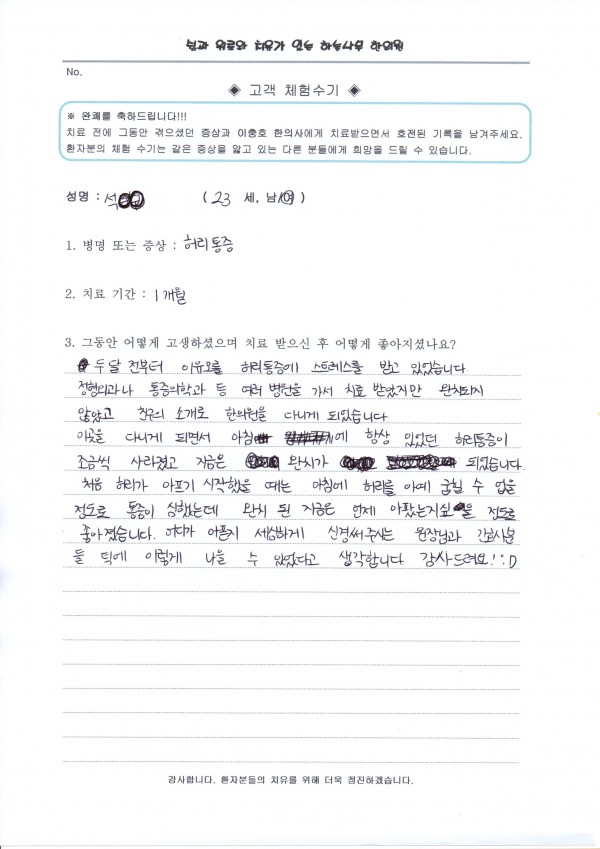 쉼과 위로와 치유가 있는 하늘나무 한의원
No.
◈ 고객 체험수기 ◈
※ 완쾌를 축하드립니다!!!
치료 전에 그동안 겪으셨던 증상과 이충호 한의사에게 치료받으면서 호전된 기록을 남겨주세요.
환자분의 체험 수기는 같은 증상을 앓고 있는 다른 분들에게 희망을 드릴 수 있습니다.
성명 : 석 ( 23 세, 남/여 )
1. 병명 또는 증상 : 허리통증
2. 치료 기간 : 1개월
3. 그동안 어떻게 고생하셨으며 치료 받으신 후 어떻게 좋아지셨나요?
두달 전부터 이유모를 허리통증에 스트레스를 받고 있었습니다
정형외과나 통증의학과 등 여러 병원을 가서 치료 받았지만 완치되지
않았고 친구의 소개로 한의원을 다니게 되었습니다
이곳을 다니게 되면서 아침에 항상 있었던 허리통증이
조금씩 사라졌고 지금은 완치가 되었습니다.
처음 허리가 아프기 시작했을 때는 아침에 허리를 아예 굽힐 수 없을
정도로 통증이 심했는데 완치 된 지금은 언제 아팠는지싶을 정도로
좋아졌습니다. 어디가 아픈지 세심하게 신경써주시는 원장님과 간호사분
들 덕에 이렇게 나을 수 있었다고 생각합니다 감사드려요! :D
감사합니다. 환자분들의 치유를 위해 더욱 정진하겠습니다.